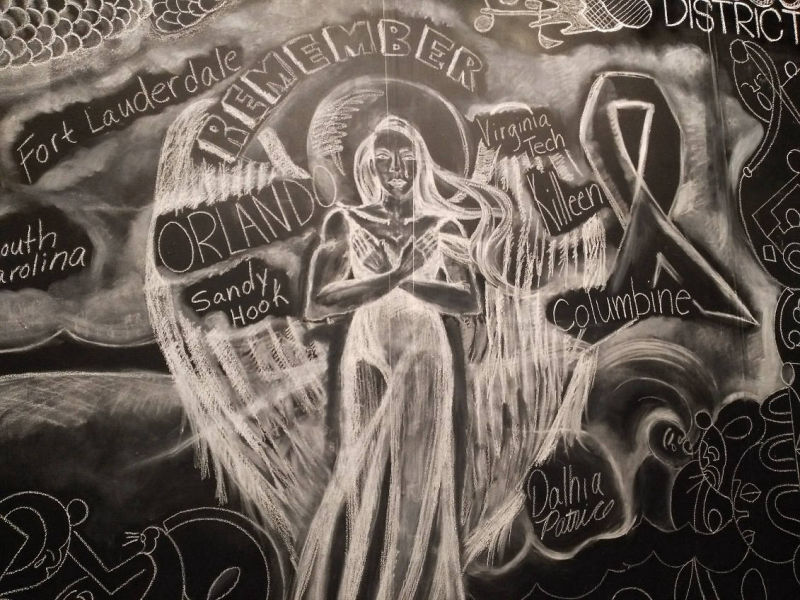 DISTRICT
REMEMBER
Fort Lauderdale
Virginia
Tech
Killeen
ORLANDO
South
Carolina
Sandy
Hook
Columbine
Dalhia